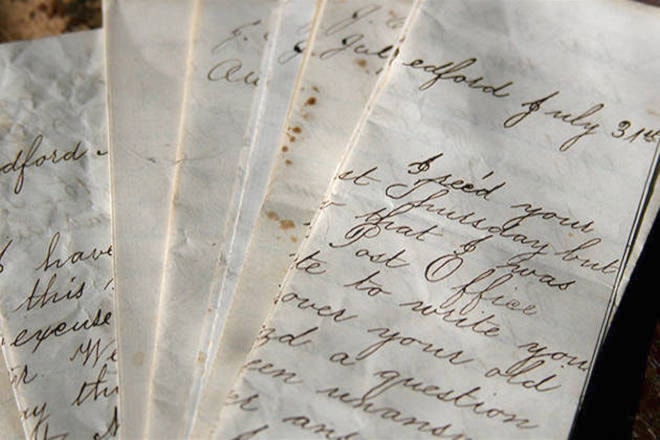 dford
I have
this
excuse
r. We
ay thi
J.
Au
J.
J. Jul
edford July 31st
I rec'd your
st Thursday but
that I was
Post Office
te to write you
over your old
nd a question
een unansw